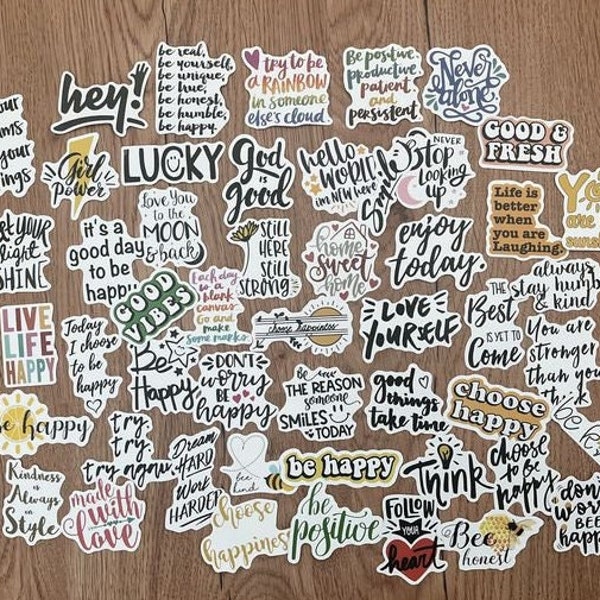 hey!
be real,
be yourself,
be unique,
be true,
be honest,
be humble,
be happy.
try to be
a RAINBOW
in someone
else's cloud.
Be positive,
productive,
patient,
and
persistent.
Never
alone
GOOD &
FRESH
Girl
Power
LUCKY
God
is
Good
hello
WORLD
i'm NEW here
Smile
NEVER
Stop
LOOKING
UP
Life is
better
when
you are
Laughing.
You
are
SHINE
it's a
good day
to be
happy
Love You
to the
MOON
& back
STILL
HERE
STILL
STRONG
home
Sweet
home
enjoy
today.
always
stay humble
& kind
LIVE
LIFE
HAPPY
Today
I choose
to be
happy
GOOD
VIBES
Each day
is a
blank
canvas
Go and
make
some marks.
choose happiness
LOVE
YOURSELF
THE
Best
IS YET TO
Come
You are
stronger
than you
Be
Happy
DON'T
WORRY
BE
HAPPY
Be
THE REASON
someone
SMILES
TODAY
good
things
take time
choose
happy
be happy
try.
try.
try again.
Dream
HARD
Work
HARDER
bee
kind
be happy
Think
choose
to be
happy
Kindness
is
Always
in
Style
made
with
love
choose
happiness
be
positive
FOLLOW
YOUR
heart
Bee
honest
don't
worry
BEE
happy